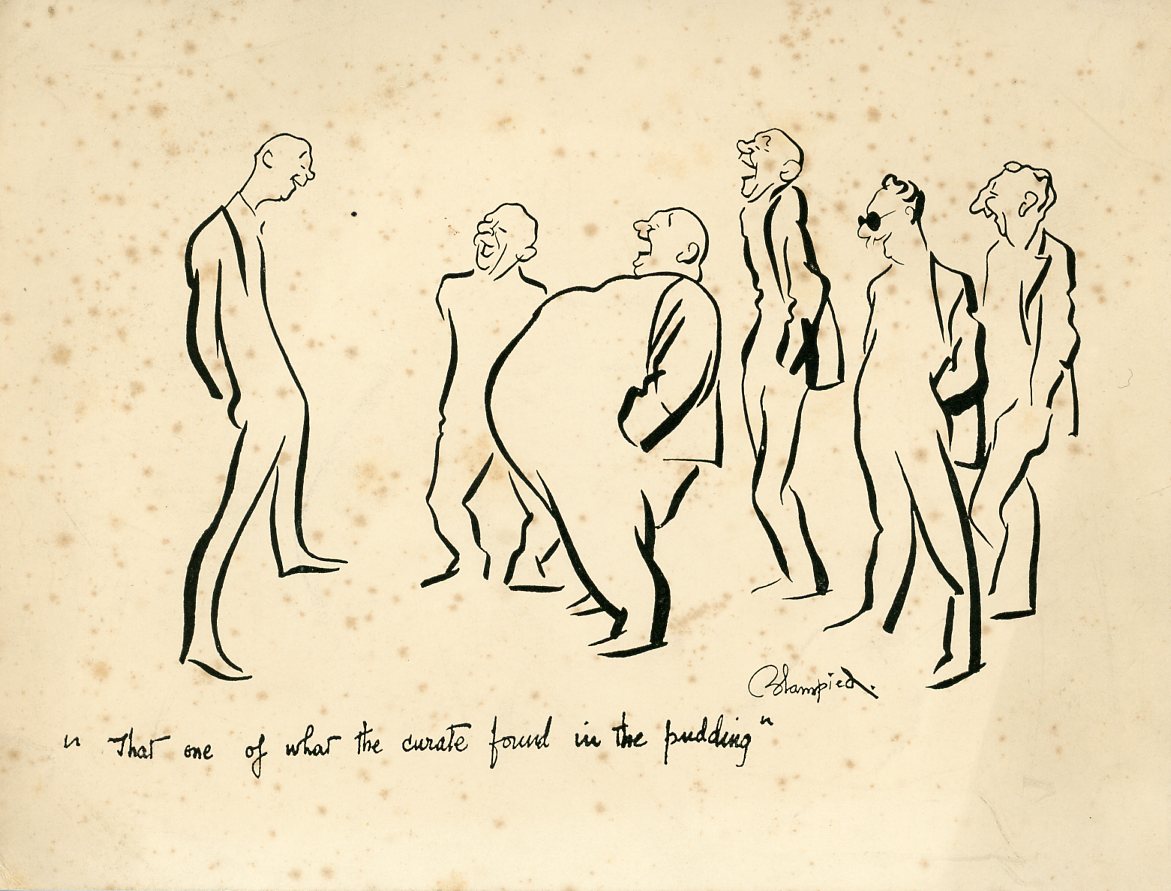 Blampied.
" That one of what the curate found in the pudding "